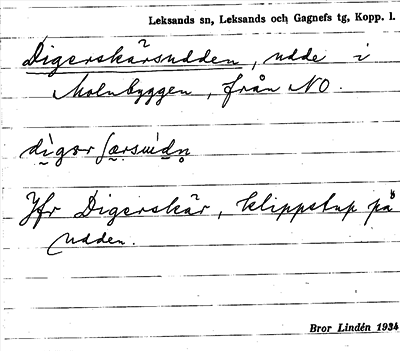 Leksands sn, Leksands och Gagnefs tg, Kopp. l.
Digerskärsudden, udde i
Molnbyggen, från NO.
digər
Jfr Digerskär, klippstup på
udden.
Bror Lindén 1934